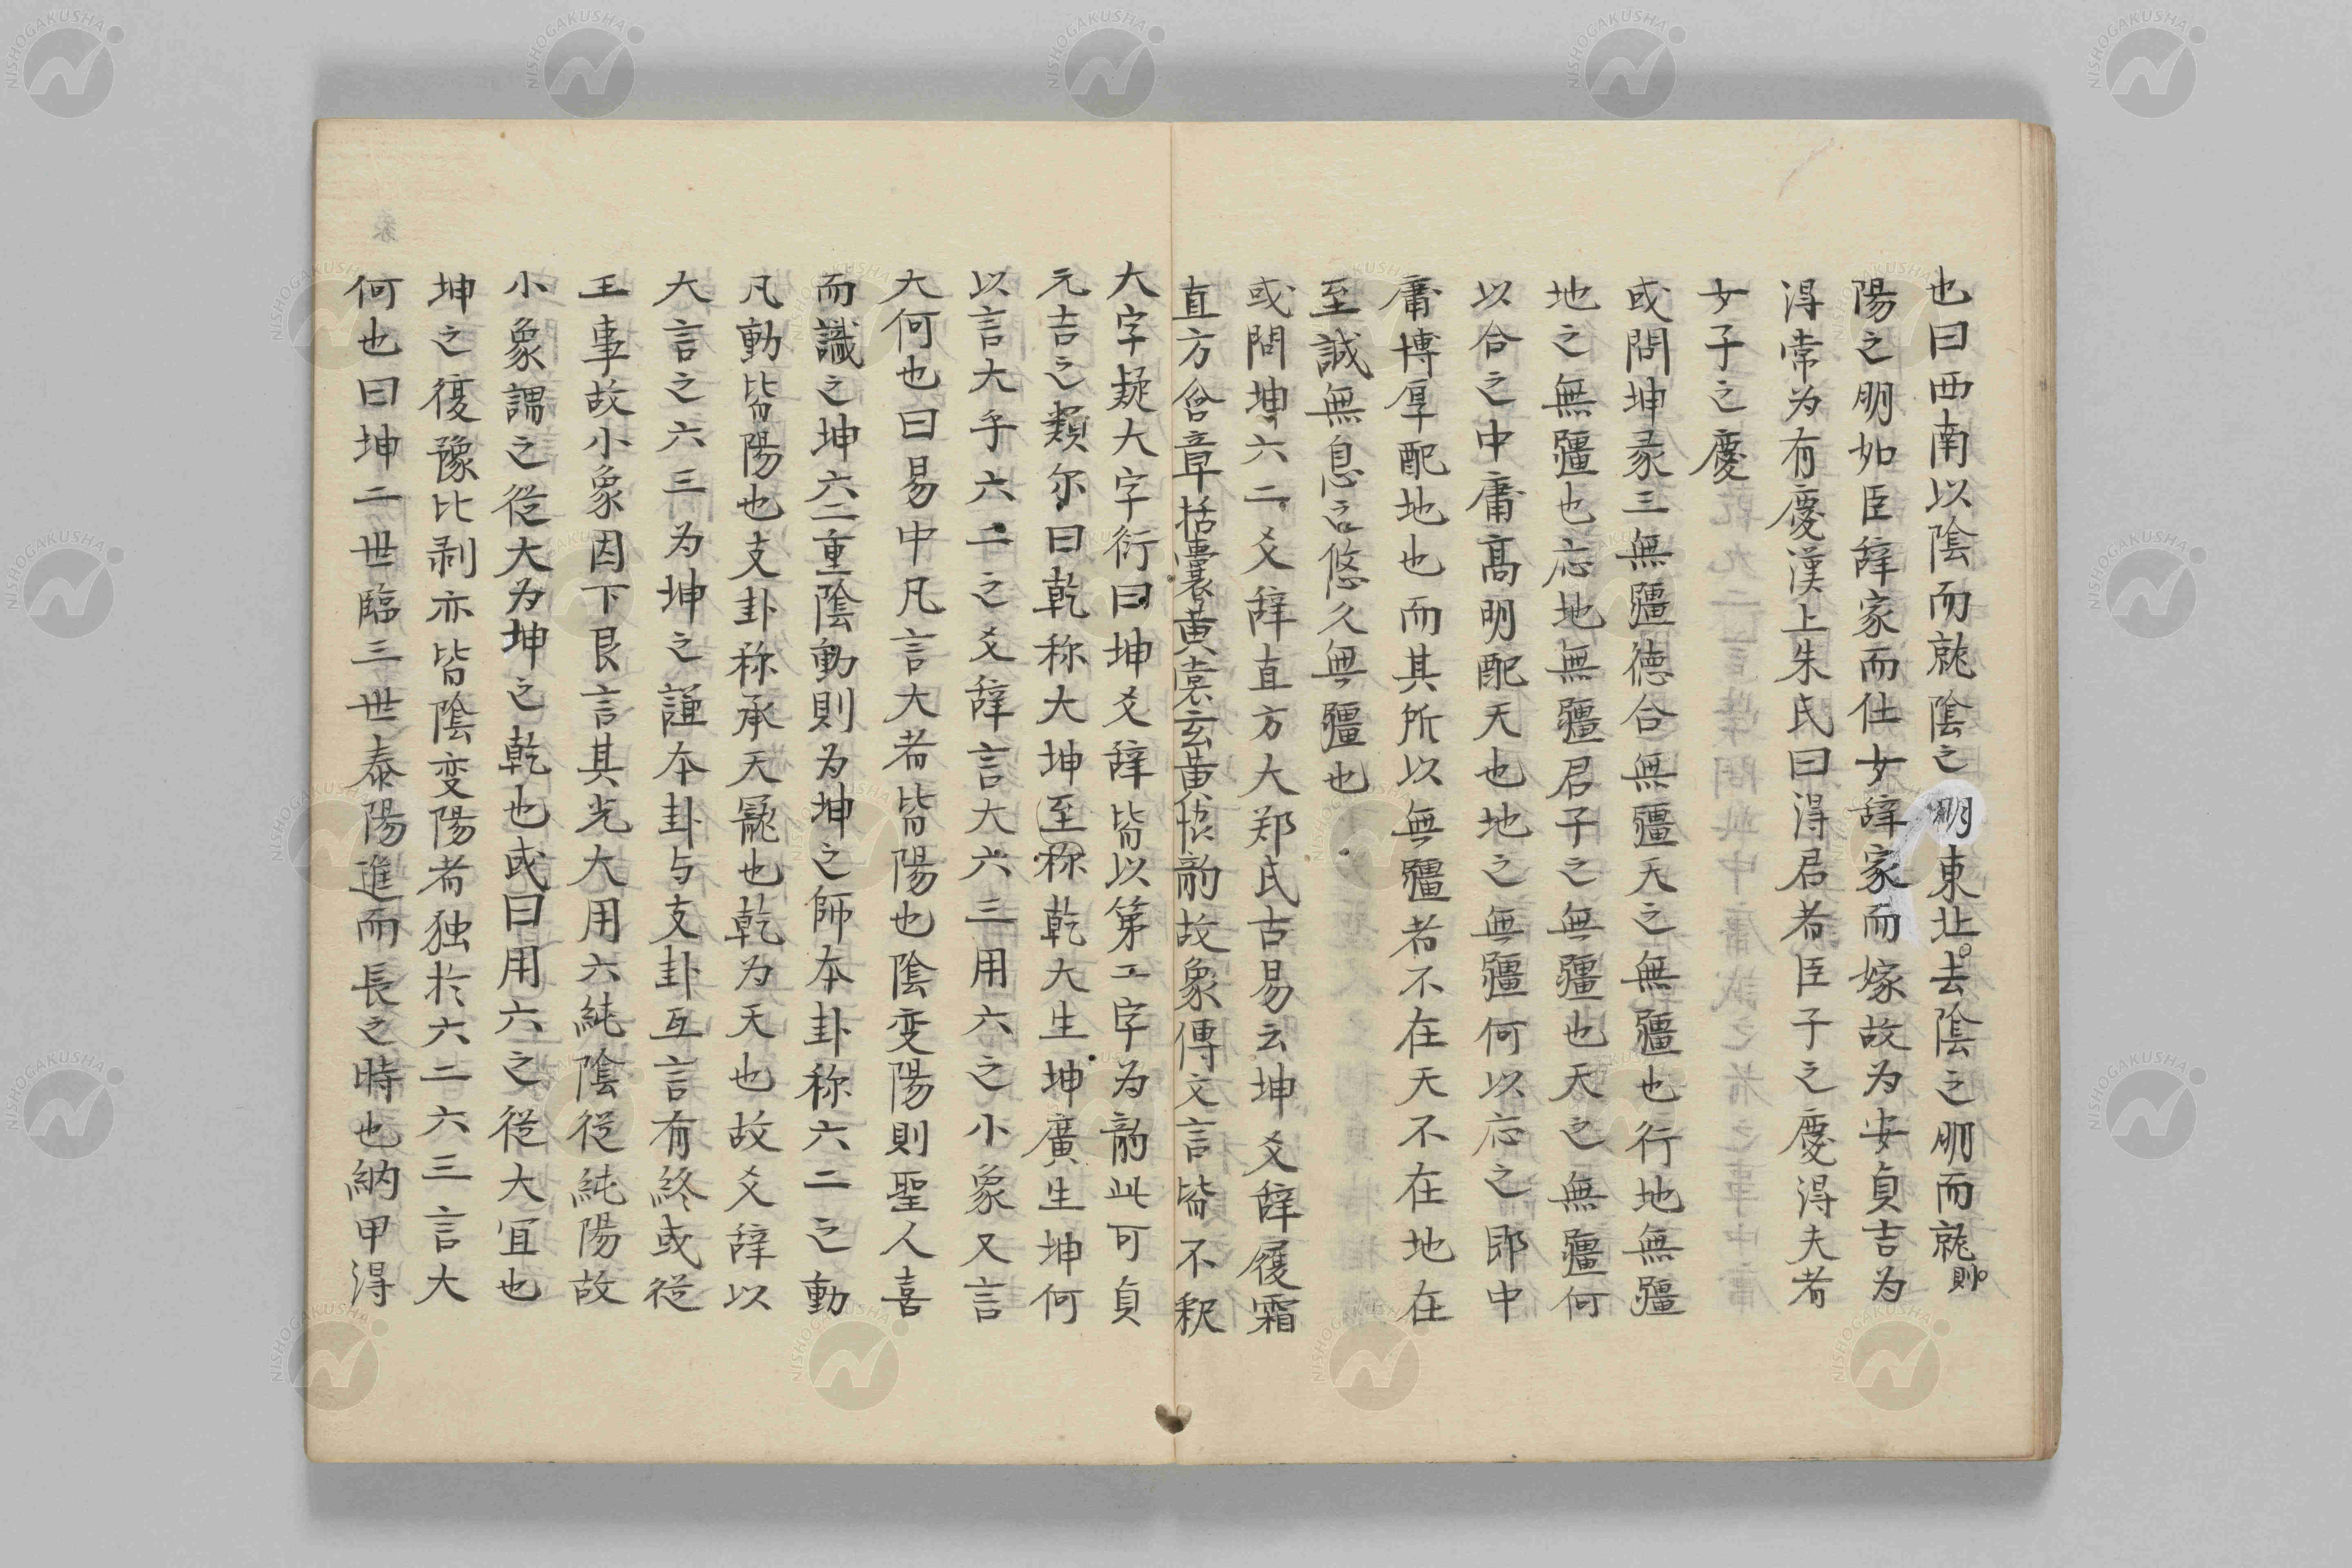 也曰西南以陰而就陰之朋東北去陰之朋而就則
陽之朋如臣辞家而仕女辞家而嫁故为安貞吉为
得常为有慶漢上朱氏曰得君者臣子之慶得夫者
女子之慶
或問坤彖三無疆徳合無疆天之無疆也行地無疆
地之無疆也応地無疆君子之無疆也天之無疆何
以合之中庸高明配天也地之無疆何以応之即中
庸博厚配地也而其所以無疆者不在天不在地在
至誠無息言悠久無疆也
或問坤六二爻辞直方大郑氏古易云坤爻辞履霜
直方含章括囊黄裳玄黄恊韵故象傳文言皆不釈
大字疑大字衍曰坤爻辞皆以第二字为韵此可貞
元吉之類尔曰乾称大坤至称乾大生坤廣生坤何
以言大乎六二之爻辞言大六三用六之小象又言
大何也曰易中凡言大者皆陽也陰变陽則聖人喜
而識之坤六二重陰動則为坤之師本卦称六二之動
凡動皆陽也支卦称承天寵也乾为天也故爻辞以
大言之六三为坤之謙本卦与支卦互言有終或従
王事故小象因下艮言其光大用六純陰従純陽故
小象謂之従大为坤之乾也或曰用六之従大冝也
坤之復豫比剥亦皆陰变陽者独於六二六三言大
何也曰坤二世臨三世泰陽進而長之時也納甲得
NISHOGAKUSHA